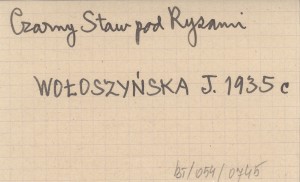 Czarny Staw pod Rysami
WOŁOSZYŃSKA J. 1935 c
/054/0745